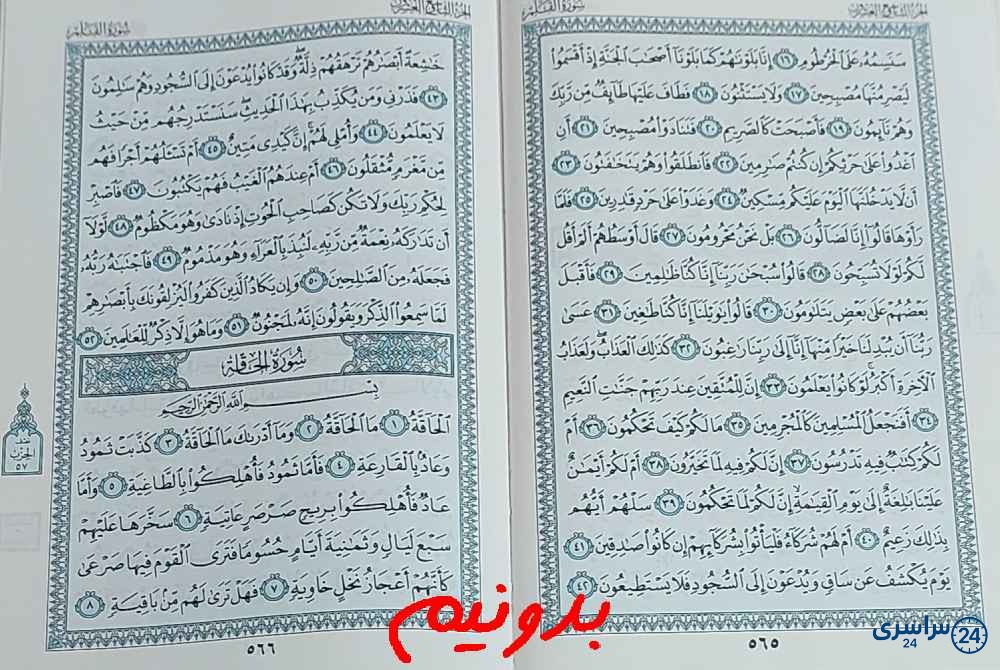 الجزء التاسع والعشرون سورة القلم
سَنَسِمُهُۥ عَلَى ٱلْخُرْطُومِ ١٦ إِنَّا بَلَوْنَٰهُمْ كَمَا بَلَوْنَآ أَصْحَٰبَ ٱلْجَنَّةِ إِذْ أَقْسَمُوا۟
لَيَصْرِمُنَّهَا مُصْبِحِينَ ١٧ وَلَا يَسْتَثْنُونَ ١٨ فَطَافَ عَلَيْهَا طَآئِفٌ مِّن رَّبِّكَ
وَهُمْ نَآئِمُونَ ١٩ فَأَصْبَحَتْ كَٱلصَّرِيمِ ٢٠ فَتَنَادَوْا۟ مُصْبِحِينَ ٢١ أَنِ
ٱغْدُوا۟ عَلَىٰ حَرْثِكُمْ إِن كُنتُمْ صَٰرِمِينَ ٢٢ فَٱنطَلَقُوا۟ وَهُمْ يَتَخَٰفَتُونَ ٢٣
أَن لَّا يَدْخُلَنَّهَا ٱلْيَوْمَ عَلَيْكُم مِّسْكِينٌ ٢٤ وَغَدَوْا۟ عَلَىٰ حَرْدٍ قَٰدِرِينَ ٢٥ فَلَمَّا
رَأَوْهَا قَالُوٓا۟ إِنَّا لَضَآلُّونَ ٢٦ بَلْ نَحْنُ مَحْرُومُونَ ٢٧ قَالَ أَوْسَطُهُمْ أَلَمْ أَقُل
لَّكُمْ لَوْلَا تُسَبِّحُونَ ٢٨ قَالُوا۟ سُبْحَٰنَ رَبِّنَآ إِنَّا كُنَّا ظَٰلِمِينَ ٢٩ فَأَقْبَلَ
بَعْضُهُمْ عَلَىٰ بَعْضٍ يَتَلَٰوَمُونَ ٣٠ قَالُوا۟ يَٰوَيْلَنَآ إِنَّا كُنَّا طَٰغِينَ ٣١ عَسَىٰ
رَبُّنَآ أَن يُبْدِلَنَا خَيْرًا مِّنْهَآ إِنَّآ إِلَىٰ رَبِّنَا رَٰغِبُونَ ٣٢ كَذَٰلِكَ ٱلْعَذَابُ ۖ وَلَعَذَابُ
ٱلْءَاخِرَةِ أَكْبَرُ ۚ لَوْ كَانُوا۟ يَعْلَمُونَ ٣٣ إِنَّ لِلْمُتَّقِينَ عِندَ رَبِّهِمْ جَنَّٰتِ ٱلنَّعِيمِ
٣٤ أَفَنَجْعَلُ ٱلْمُسْلِمِينَ كَٱلْمُجْرِمِينَ ٣٥ مَا لَكُمْ كَيْفَ تَحْكُمُونَ ٣٦ أَمْ
لَكُمْ كِتَٰبٌ فِيهِ تَدْرُسُونَ ٣٧ إِنَّ لَكُمْ فِيهِ لَمَا تَخَيَّرُونَ ٣٨ أَمْ لَكُمْ أَيْمَٰنٌ
عَلَيْنَا بَٰلِغَةٌ إِلَىٰ يَوْمِ ٱلْقِيَٰمَةِ ۙ إِنَّ لَكُمْ لَمَا تَحْكُمُونَ ٣٩ سَلْهُمْ أَيُّهُم
بِذَٰلِكَ زَعِيمٌ ٤٠ أَمْ لَهُمْ شُرَكَآءُ فَلْيَأْتُوا۟ بِشُرَكَآئِهِمْ إِن كَانُوا۟ صَٰدِقِينَ ٤١
يَوْمَ يُكْشَفُ عَن سَاقٍ وَيُدْعَوْنَ إِلَى ٱلسُّجُودِ فَلَا يَسْتَطِيعُونَ ٤٢
٥٦٥
الجزء التاسع والعشرون سورة القلم
خَٰشِعَةً أَبْصَٰرُهُمْ تَرْهَقُهُمْ ذِلَّةٌ ۖ وَقَدْ كَانُوا۟ يُدْعَوْنَ إِلَى ٱلسُّجُودِ وَهُمْ سَٰلِمُونَ
٤٣ فَذَرْنِى وَمَن يُكَذِّبُ بِهَٰذَا ٱلْحَدِيثِ ۖ سَنَسْتَدْرِجُهُم مِّنْ حَيْثُ
لَا يَعْلَمُونَ ٤٤ وَأُمْلِى لَهُمْ ۚ إِنَّ كَيْدِى مَتِينٌ ٤٥ أَمْ تَسْـَٔلُهُمْ أَجْرًا فَهُم
مِّن مَّغْرَمٍ مُّثْقَلُونَ ٤٦ أَمْ عِندَهُمُ ٱلْغَيْبُ فَهُمْ يَكْتُبُونَ ٤٧ فَٱصْبِرْ
لِحُكْمِ رَبِّكَ وَلَا تَكُن كَصَاحِبِ ٱلْحُوتِ إِذْ نَادَىٰ وَهُوَ مَكْظُومٌ ٤٨ لَّوْلَآ
أَن تَدَٰرَكَهُۥ نِعْمَةٌ مِّن رَّبِّهِۦ لَنُبِذَ بِٱلْعَرَآءِ وَهُوَ مَذْمُومٌ ٤٩ فَٱجْتَبَٰهُ رَبُّهُۥ
فَجَعَلَهُۥ مِنَ ٱلصَّٰلِحِينَ ٥٠ وَإِن يَكَادُ ٱلَّذِينَ كَفَرُوا۟ لَيُزْلِقُونَكَ بِأَبْصَٰرِهِمْ
لَمَّا سَمِعُوا۟ ٱلذِّكْرَ وَيَقُولُونَ إِنَّهُۥ لَمَجْنُونٌ ٥١ وَمَا هُوَ إِلَّا ذِكْرٌ لِّلْعَٰلَمِينَ ٥٢
سُورَةُ الحَاقَّةِ
بِسْمِ ٱللَّهِ ٱلرَّحْمَٰنِ ٱلرَّحِيمِ
ٱلْحَآقَّةُ ١ مَا ٱلْحَآقَّةُ ٢ وَمَآ أَدْرَىٰكَ مَا ٱلْحَآقَّةُ ٣ كَذَّبَتْ ثَمُودُ
وَعَادٌۢ بِٱلْقَارِعَةِ ٤ فَأَمَّا ثَمُودُ فَأُهْلِكُوا۟ بِٱلطَّاغِيَةِ ٥ وَأَمَّا
عَادٌ فَأُهْلِكُوا۟ بِرِيحٍ صَرْصَرٍ عَاتِيَةٍ ٦ سَخَّرَهَا عَلَيْهِمْ
سَبْعَ لَيَالٍ وَثَمَٰنِيَةَ أَيَّامٍ حُسُومًا فَتَرَى ٱلْقَوْمَ فِيهَا صَرْعَىٰ
كَأَنَّهُمْ أَعْجَازُ نَخْلٍ خَاوِيَةٍ ٧ فَهَلْ تَرَىٰ لَهُم مِّنۢ بَاقِيَةٍ ٨
٥٦٦
الحزب
٥٧
بدونیم
سراسری 24
24